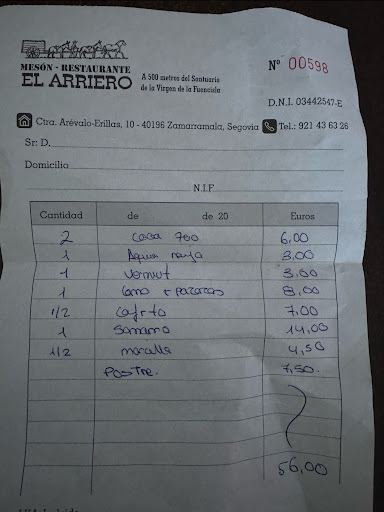 MESÓN - RESTAURANTE
EL ARRIERO
A 500 metros del Santuario
de la Virgen de la Fuencisla
Nº 00598
D.N.I. 03442547-E
Ctra. Arévalo-Erillas, 10 - 40196 Zamarramala, Segovia Tel.: 921 43 63 26
Sr: D.
Domicilio
N.I.F
Cantidad de de 20 Euros
2 700 6,00
1 Agua 3,00
1 vermut 3,00
1 8,00
1/2 7,00
1 14,00
1/2 4,50
Postre. 7,50.
56,00